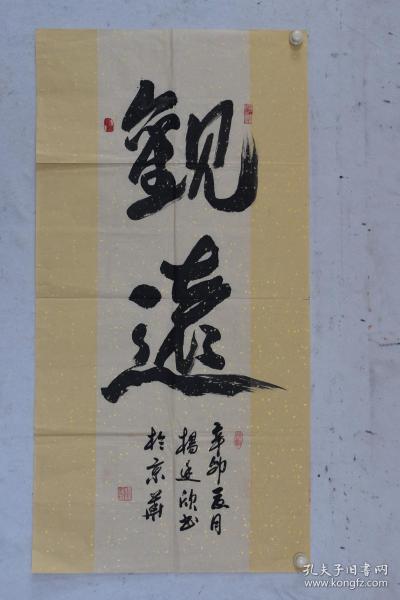 觀遠
辛卯夏月
楊廷欣书
於京華
孔夫子旧书网
www.kongfz.com